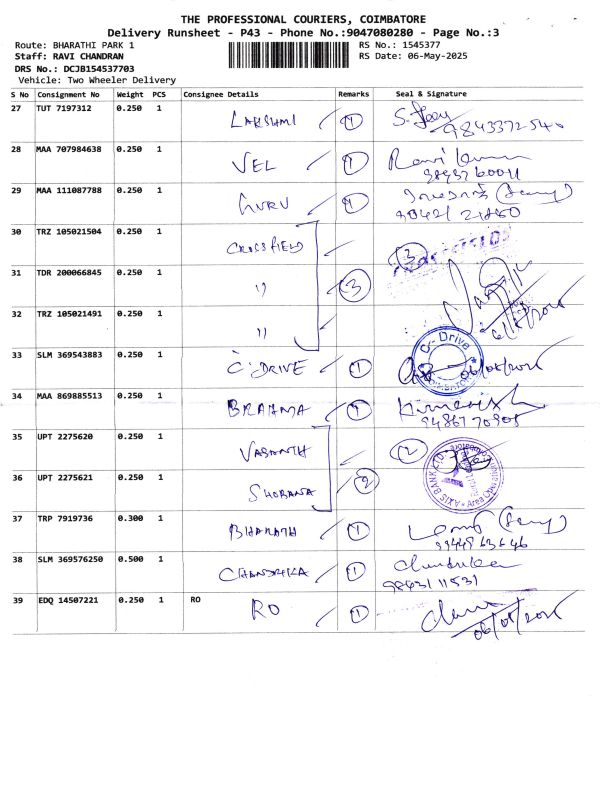 THE PROFESSIONAL COURIERS, COIMBATORE
Delivery Runsheet - P43 - Phone No.:9047080280 - Page No.:3
Route: BHARATHI PARK 1 RS No.: 1545377
Staff: RAVI CHANDRAN RS Date: 06-May-2025
DRS No.: DCJB154537703
Vehicle: Two Wheeler Delivery
S No Consignment No Weight PCS Consignee Details Remarks Seal & Signature
27 TUT 7197312 0.250 1 LAKSHMI 1 9843372540
28 MAA 707984638 0.250 1 VEL 1 Ravi Kumar
29 MAA 111087788 0.250 1 GURU 1
30 TRZ 105021504 0.250 1 CROSSFIELD 3
31 TDR 200066845 0.250 1 " 3
32 TRZ 105021491 0.250 1 "
33 SLM 369543883 0.250 1 C-DRIVE 1 C-Drive
34 MAA 869885513 0.250 1 BRAHMA 1
35 UPT 2275620 0.250 1 VASANTH 2
36 UPT 2275621 0.250 1 SHOBANA 2 AXIS BANK LTD
37 TRP 7919736 0.300 1 BHARATH 1
38 SLM 369576250 0.500 1 CHANDRIKA 1 Chandrika
9843111531
39 EDQ 14507221 0.250 1 RO RO 1